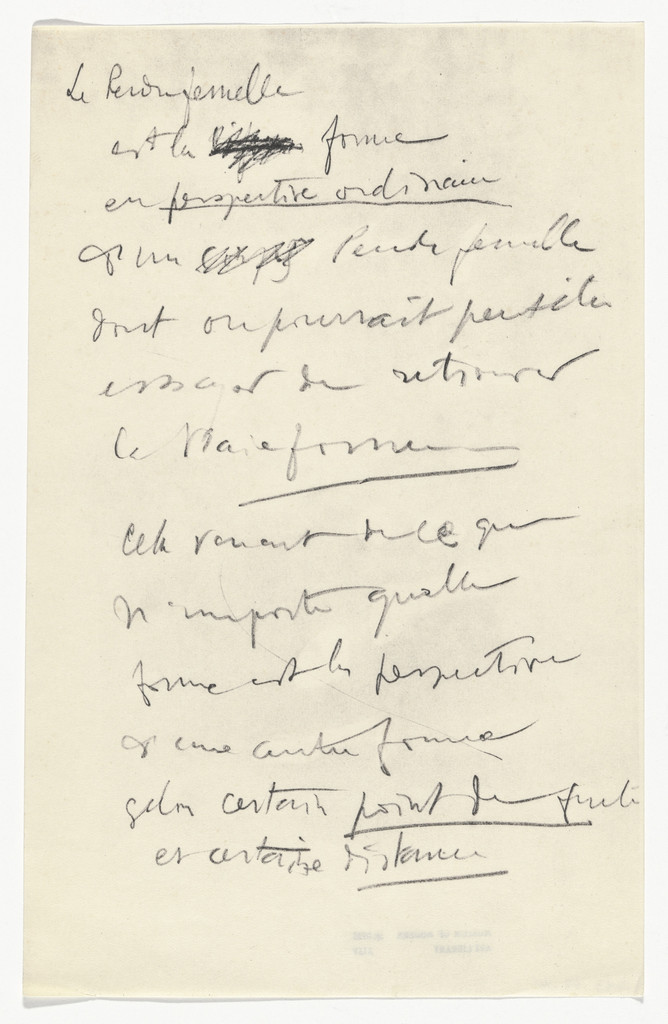 Le Pendu femelle
est la forme
en perspective ordinaire
d'un Pendu femelle
dont on pourrait peut être
essayer de retrouver
la vraie forme
Cela venant de ce que
n'importe quelle
forme est la perspective
d'une autre forme
selon certain point de fuite
et certaine distance